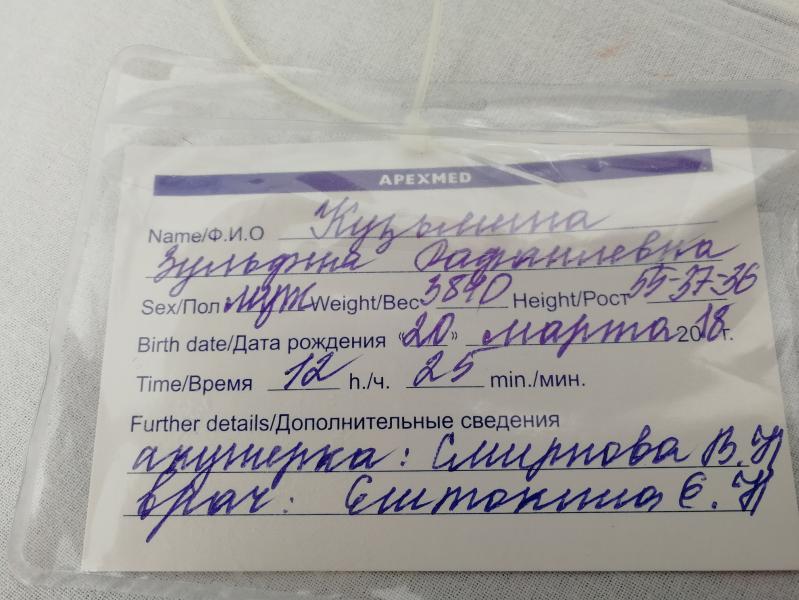 APEXMED
Name/Ф.И.О Кузьмина
Зульфия Рафаилевна
Sex/Пол муж Weight/Вес 3840 Height/Рост 55-37-36
Birth date/Дата рождения «20» марта 2018г.
Time/Время 12 h./ч. 25 min./мин.
Further details/Дополнительные сведения
акушерка: Смирнова В.Н
врач: Е.Н